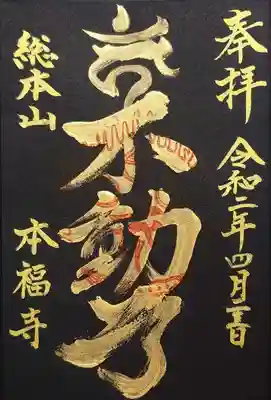 奉拝
令和二年四月吉日
不動
総本山
本福寺